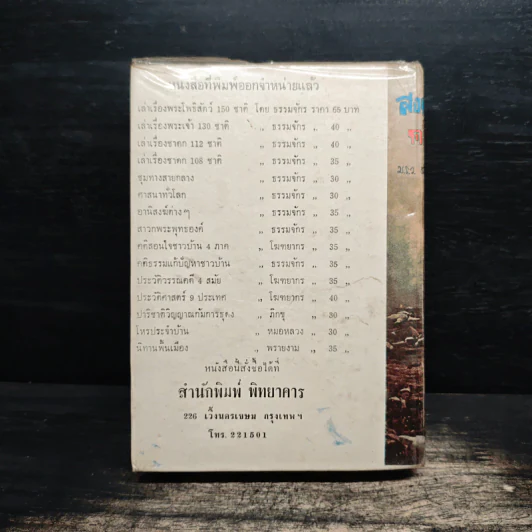 หนังสือที่พิมพ์ออกจำหน่ายแล้ว
เล่าเรื่องพระโพธิสัตว์ 150 ชาติ โดย ธรรมจักร ราคา 65 บาท
เล่าเรื่องพระเจ้า 130 ชาติ ,, ธรรมจักร ,, 40 ,,
เล่าเรื่องชาดก 112 ชาติ ,, ธรรมจักร ,, 40 ,,
เล่าเรื่องชาดก 108 ชาติ ,, ธรรมจักร ,, 35 ,,
ชุมทางสายกลาง ,, ธรรมจักร ,, 30 ,,
ศาสนาทั่วโลก ,, ธรรมจักร ,, 30 ,,
อานิสงฆ์ต่างๆ ,, ธรรมจักร ,, 35 ,,
สาวกพระพุทธองค์ ,, ธรรมจักร ,, 35 ,,
คติสอนใจชาวบ้าน 4 ภาค ,, โฆฑยากร ,, 35 ,,
คติธรรมแก้ปัญหาชาวบ้าน ,, ธรรมจักร ,, 35 ,,
ประวัติวรรณคดี 4 สมัย ,, โฆฑยากร ,, 35 ,,
ประวัติศาสตร์ 9 ประเทศ ,, โฆฑยากร ,, 40 ,,
ปาริชาติวิญญาณกัมการธุดง ,, ภิกขุ ,, 30 ,,
โหรประจำบ้าน ,, หมอหลวง ,, 30 ,,
นิทานพื้นเมือง ,, พรายงาม ,, 35 ,,
หนังสือนี้สั่งซื้อได้ที่
สำนักพิมพ์ พิทยาคาร
226 เวิ้งนครเขษม กรุงเทพฯ
โทร. 221501